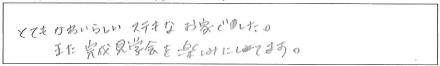 とてもかわいらしいステキなお家でした。
また完成見学会を楽しみにしてます。